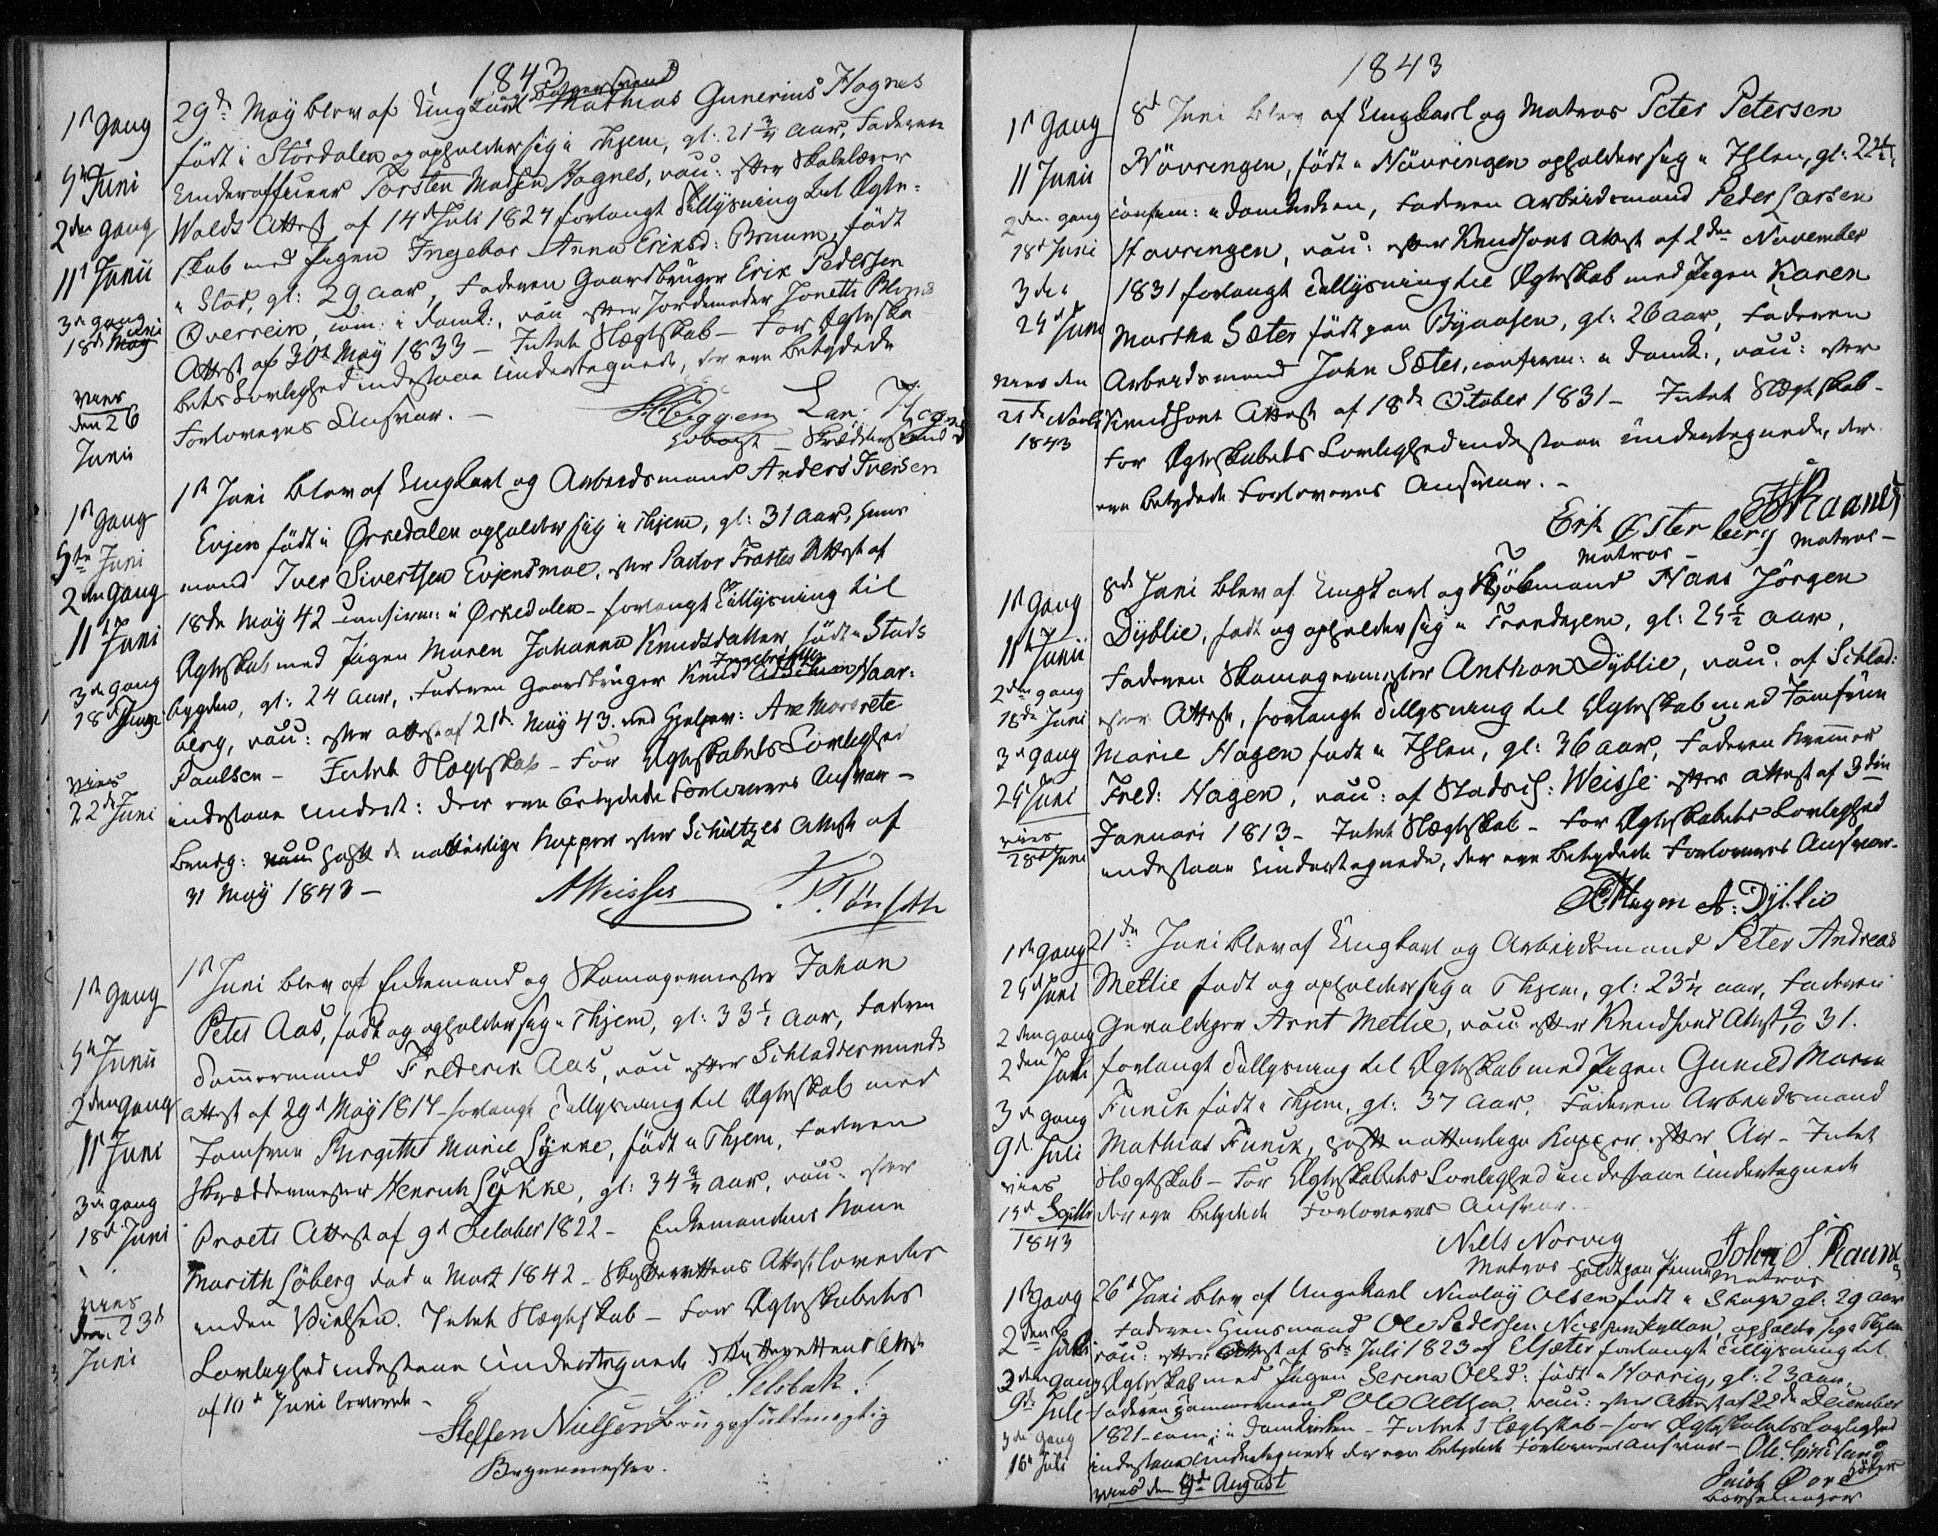 1843
1ste Gang
5te Juni
2den Gang
11te Junii
3de gang
18de Juni
viet
den 26
Junii
29de May blev af Ungkarl Mathias Gunerius Hognes
født i Stördalen og opholder sig i Thjem, gl: 21 3/4 aar, Faderen
Underofficeer Torsten Madsen Hognes, vacc: efter Skolelærer
Wolds Attest af 14de Juli 1824 forlangt Tillysning til Ægte-
skab med Pigen Ingebor Anna Eriksd: Bruum, født
i Stod, gl: 29 aar, Faderen Gaardbruger Erik Pedersen
Overrein, conf: i Domk:, vacc efter Jordemoder Jonette
Attest af 30te May 1833 – Intet Slægtskab – For Ægteska-
bets Lovlighed indestaae undertegnede, der ere betydede
Forloveres Ansvar. –
H Eggen Lar: Hognes
Skrædersvend
1ste Gang
5te Juni
2den Gang
11te Juni
3de Gang
18de Juni
viet
22de Juni
1ste Juni blev af Ungkarl og Arbeidsmand Anders Iversen
Evjen født i Ørkedalen opholder sig i Thjem, gl: 31 aar, Huus
mand Iver Sivertsen Evjensmoe, efter Pastor Frosts Attest af
18de May 42 confirm: i Ørkedalen – forlangt Tillysning til
Ægteskab med Pigen Maren Johanna Knudsdatter, født i Stads
bygden, gl: 24 aar, Faderen Gaardbruger Knud Haar-
berg, vacc: efter attest af 21de May 43 ved Hjelpev: Ane Margrete
Paulsen – Intet Slægtskab – For Ægteskabets Lovlighed
indestaae undert: der ere betydede Forloveres Ansvar –
havt de naturlige Kopper efter Schultzes Attest af
31 May 1843 –
A Weisser
1ste Gang
5te Junii
2den gang
11te Juni
3die gang
18de Juni
viet
den 23de
Juni
1ste Juni blev af Enkemand og Skomagermester Johan
Peter Aas, født og opholder sig i Thjem, gl: 33 1/2 aar, Faderen
Tømmermand Frederik Aas, vacc efter Schlødtermunds
attest af 29de May 1817 – forlangt Tillysning til Ægteskab med
Jomfrue Birgitte Marie Lykke, født i Thjem, Faderen
Skræddermester Henrich Lykke, gl: 34 3/4 aar, vacc: efter
Proets Attest af 9de October 1822 – Enkemandens Kone
Marith Søberg død i Mart 1842 – Skifterettens Attest lovedes
inden Vielsen. Intet Slægtskab – For Ægteskabets
Lovlighed indestaae Undertegnede Skifterettens Attest
af 10de Juni leveret –
P: Selsbak!
Steffen Nielsen Brugsfuldmegtig
Bøgermester.
1843
1ste Gang
11 Junii
2den gang
18de Juni
3de
25de Juni
viet den
21de Novbr
1843
8de Juni blev af Ungkarl og Matros Peter Petersen
Növringen, født i Növringen opholder sig i Ihlen, gl: 22 1/2
confirm: i Domkirken, Faderen Arbeidsmand Peder Larsen
Hovringen, vacc: efter Knudsons Attest af 2den November
1831 forlangt Tillysning til Ægteskab med Pigen Karen
Martha Sæter født paa Byaasen, gl: 26 aar, Faderen
Arbeidsmand John Sæter, confirm: i Domk:, vacc: efter
Knudsons Attest af 18de October 1831 – Intet Slægtskab –
For Ægteskabets Lovlighed indestaae undertegnede, der
ere betydede Forloveres Ansvar. –
Erik Østerberg
Matros –
Matros –
1ste Gang
11te Junii
2den gang
18de Juni
3de gang
25 Juni
viet
28de Juni
8de Juni blev af Ungkarl og Kjøbmand Hans Jörgen
Dyblie, født og opholder sig i Trondhjem, gl: 25 1/2 aar,
Faderen Skomagermester Anthon Dyblie, vacc: af Schlød:
efter Attest, forlangt Tillysning til Ægteskab med Jomfrue
Marie Hagen født i Ihlen, gl: 36 aar, Faderen Kræmmer
Fred: Hagen, vacc: af Stadsch: Weisse efter attest af 3die
Januari 1813 – Intet Slægtskab – For Ægteskabets Lovlighed
indestaae Undertegnede, der ere betydede Forloveres Ansvar –
Hagen A: Dyblie
1ste Gang
25de Juni
2den gang
2den Juli
3de gang
9de Juli
viet
15de Septbr
1843
21de Juni blev af Ungkarl og Arbeidsmand Peter Andreas
Metlie født og opholder sig i Thjem, gl: 23 1/2 aar, Faderen
Gevaldiger Arnt Metlie, vacc: efter Knudsons Attest 9/10 31.
forlangt Tillysning til Ægteskab med Pigen Gunild Maria
Funck født i Thjem, gl: 37 aar, Faderen Arbeidsmand
Mathias Funck, havt naturlige Kopper efter Air – Intet
Slægtskab – For Ægteskabets Lovlighed indestaae Undertegnede
der ere betydede Forloveres Ansvar. –
Niels Norvig
Matros holdt paa Pennen
John S. Raanes
Matros
1ste Gang
2den Juli
2den gang
9de Juli
3de gang
16de Juli
26de Juni blev af Ungekarl Nicolay Olsen født i Skogn gl: 29 aar
Faderen Huusmand Ole Pedersen, opholder sig i Thjem
vacc: efter Attest af 8de Juli 1823 af Elsæter forlangt Tillysning til
Ægteskab med Pigen Serina Olsd: født i Norvig, gl: 23 aar,
Faderen Tømmermand Ole Olsen, vacc: efter Attest af 22de December
1821 – conf: i Domkirken – Intet Slægtskab – for Ægteskabets Lovlighed
indestaae Undertegnede der ere betydede Forloveres Ansvar –
viet den 9de August
Jacob Øre